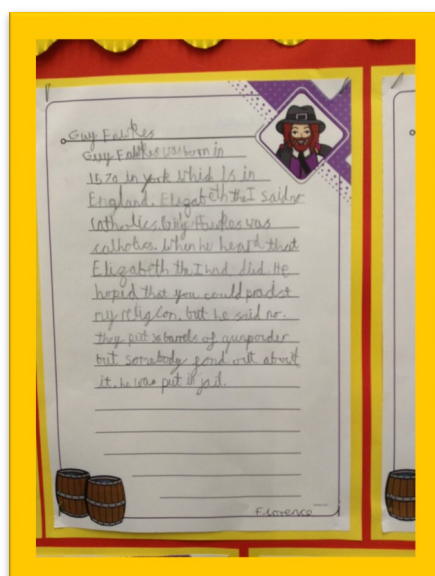 Guy Fawkes
Guy Fawkes was born in
1570 in york which is in
England. Elizabeth the I said no
catholics. Guy Fawkes was
catholics. When he heard that
Elizabeth the I had died. He
hopid that you could
my religion. but he said no.
they put 36 barrels of gunporder
but somebody fond out about
it. he was put in jail.
Florence